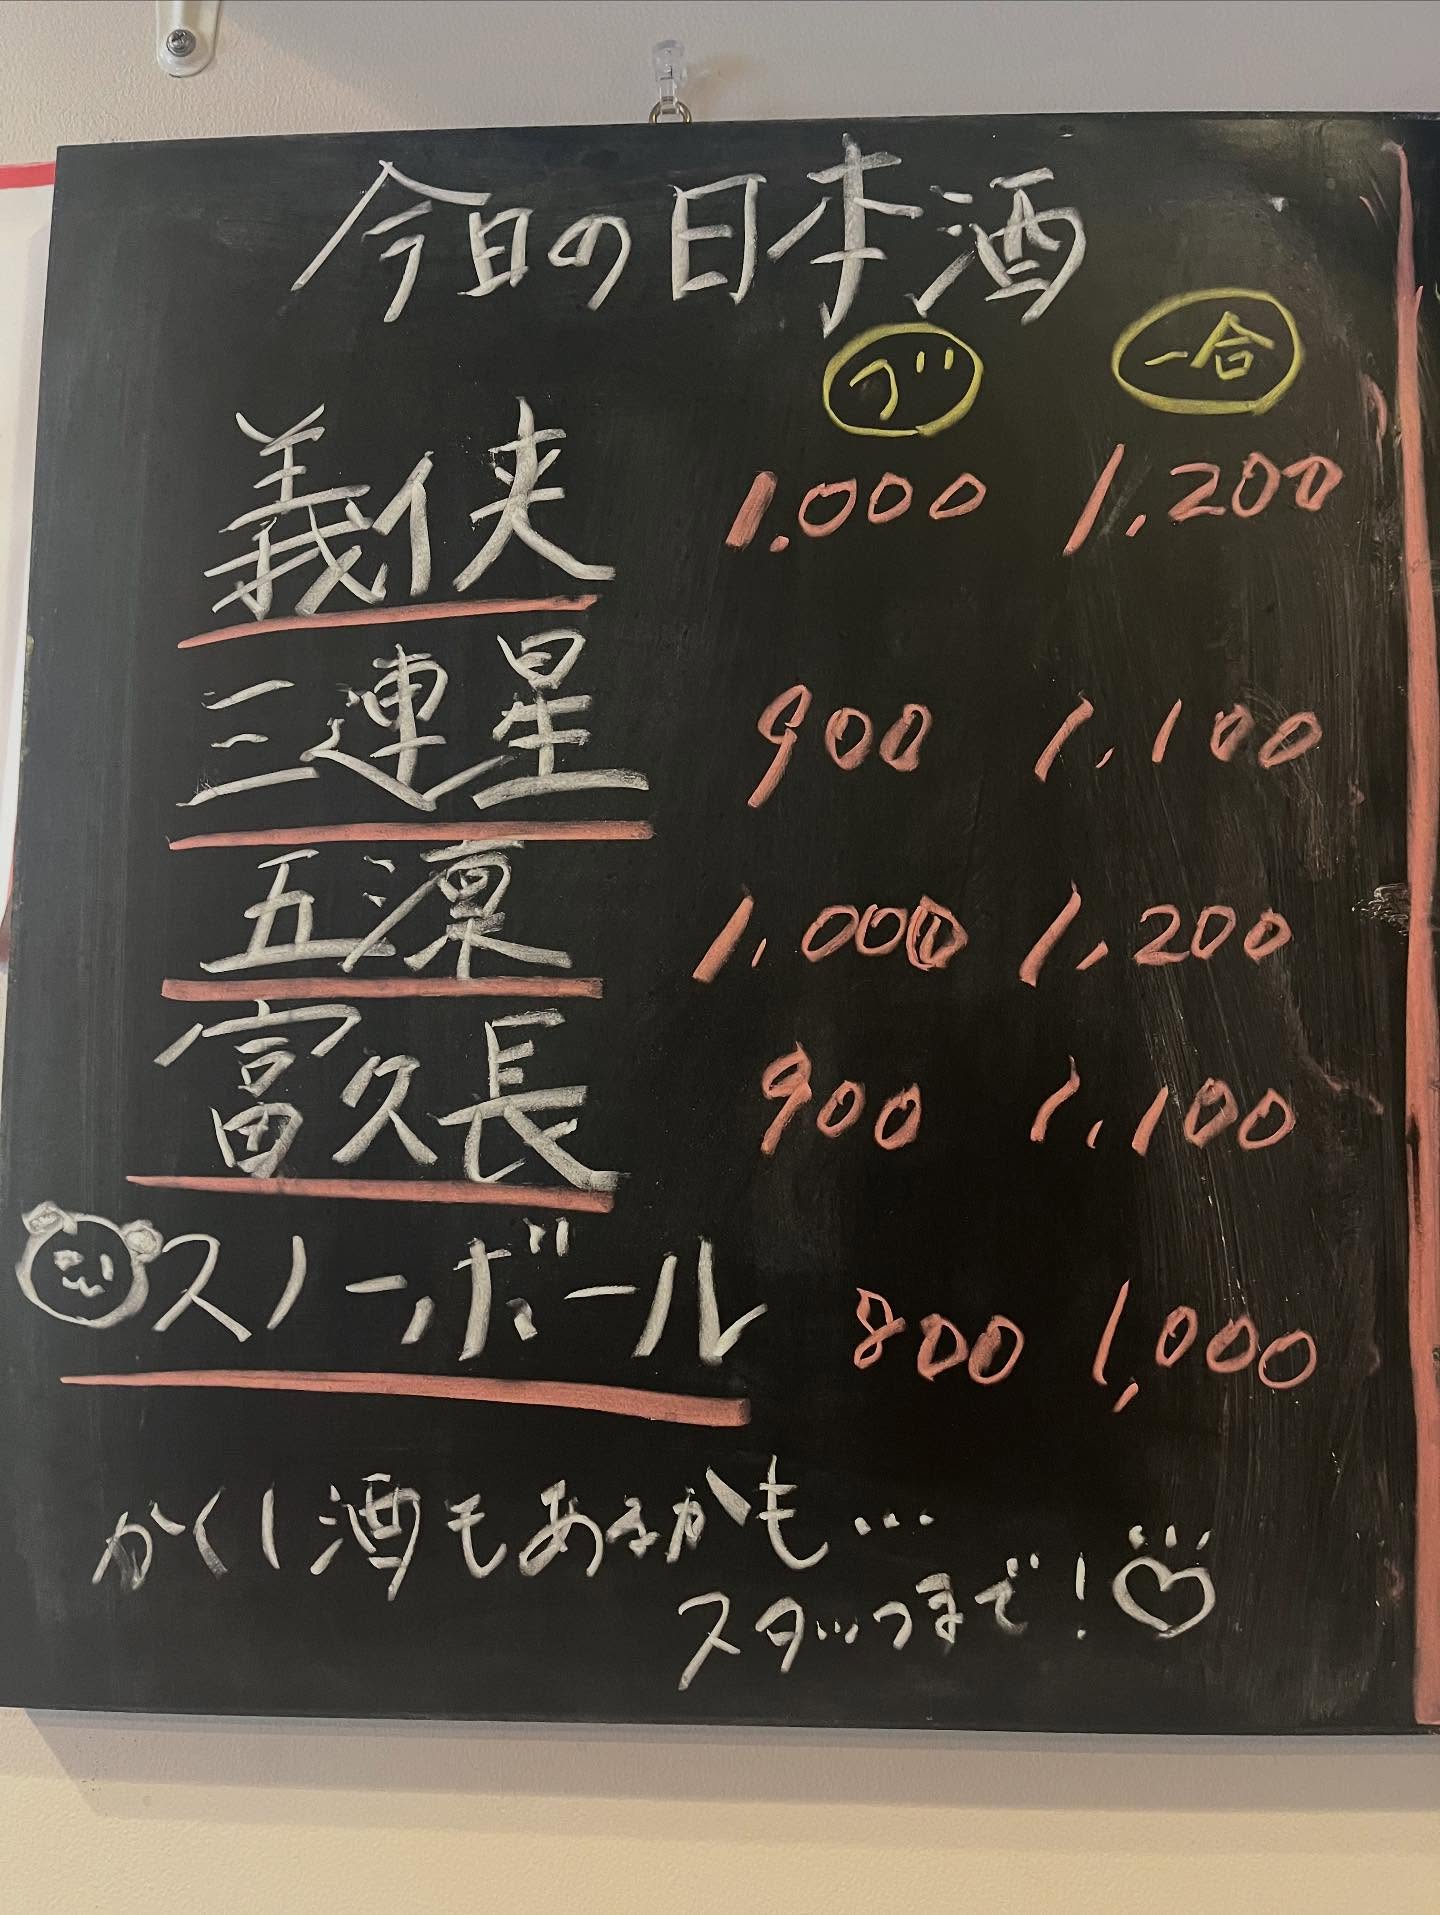 今日の日本酒
グ 一合
義侠 1.000 1.200
三連星 900 1.100
五凛 1.000 1.200
富久長 900 1.100
スノーボール 800 1,000
かくし酒もあるかも…
スタッフまで！